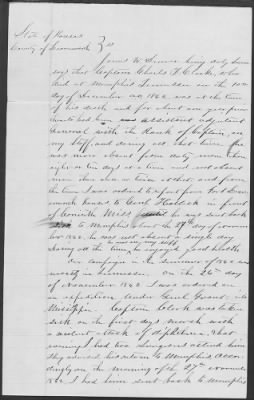 State of Kansas
County of Leavenworth } ss
James W. Denver being duly sworn
says that Captain Charles F. Clarke, who
died at Memphis Tennessee on the 10th
day of December AD 1862, was at the time
of his death and for about one year pre-
vious had been Assistant Adjutant
General with the Rank of Captain, on
my Staff, and during all that time
was never absent from duty more than
eight or ten days at a time and not absent
more than or twice, and from
the time I was ordered to report from Fort Leaven-
worth Kansas to Genl Halleck in front
of Corinth Miss until he was sent back
to Memphis about the 27th day of Novem-
ber 1862, he was not absent a single day
during all the time he was on my staff he enjoyed good health
Our campaign in the summer of 1862 was
mostly in Tennessee. On the 26th day
of November 1862 I was ordered on
an expedition under Genl Grant into
Mississippi. Captain Clarke was taken
sick on the first days march with
a violent attack of diptheria. That
evening I had two Surgeons attend him
They advised his return to Memphis Accor-
dingly on the morning of the 27th November
1862 I had him sent back to Memphis